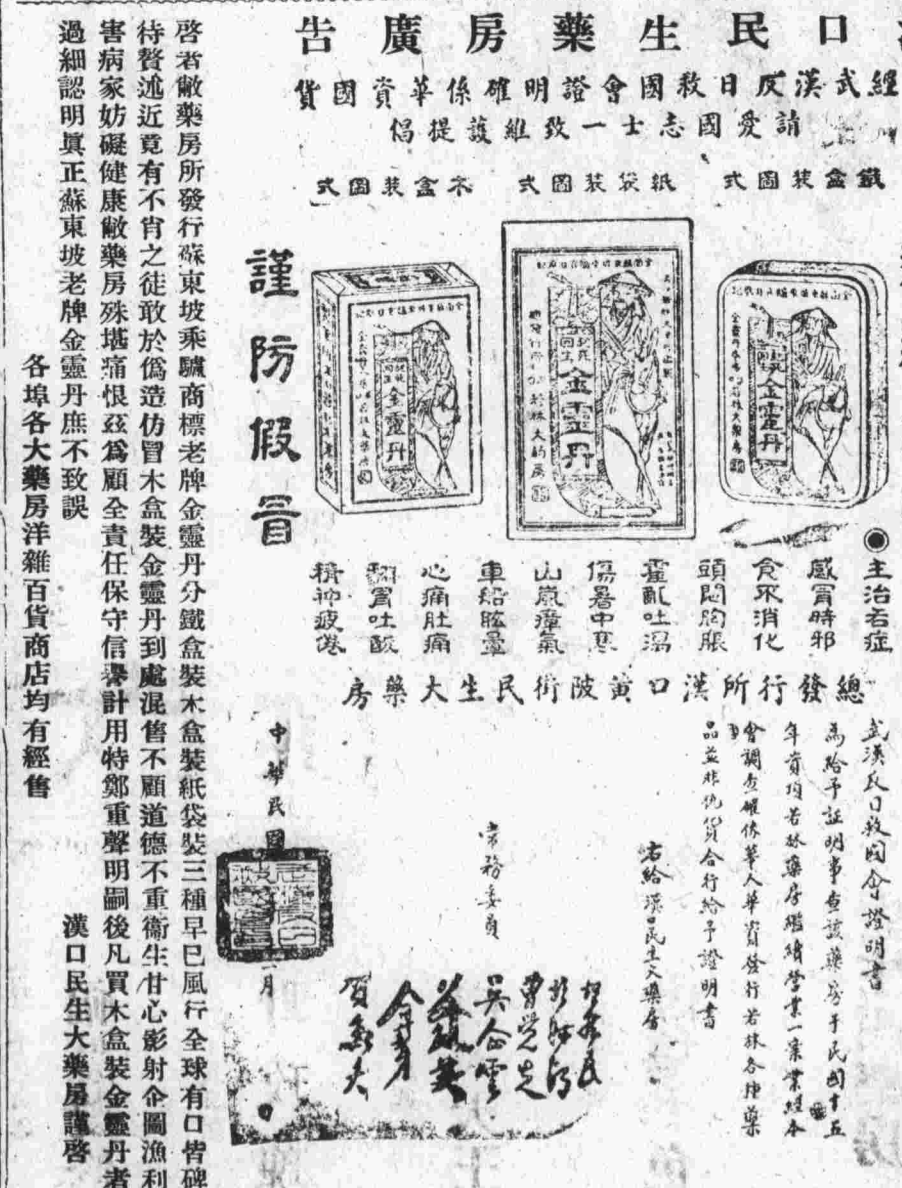 口民生藥房廣告
經武漢反日救國會證明確係華資國貨
請愛國志士一致維護提倡
鐵盒裝圖式
紙袋裝圖式
木盒裝圖式
起死回生
金靈丹
金靈丹
金靈丹
謹防假冒
主治各症
感冒時邪
食不消化
頭悶胸脹
霍亂吐瀉
傷暑中寒
山嵐瘴氣
車船眩暈
心痛肚痛
翻胃吐酸
精神疲倦
總發行所漢口黃陂街民生大藥房
武漢反日救國會證明書
為給予証明事查該藥房于民國十五
年賣項若林藥房繼續營業一案業經本
會調查確係華人華資發行若林各種藥
品並非仇貨合行給予證明書
右給漢口民生大藥房
常務委員
中華民國
一月
日
啓者敝藥房所發行蘇東坡乘驢商標老牌金靈丹分鐵盒裝木盒裝紙袋裝三種早已風行全球有口皆碑
待贅述近竟有不肖之徒敢於僞造仿冒木盒裝金靈丹到處混售不顧道德不重衞生甘心影射企圖漁利
害病家妨礙健康敝藥房殊堪痛恨茲爲顧全責任保守信譽計用特鄭重聲明嗣後凡買木盒裝金靈丹者
過細認明眞正蘇東坡老牌金靈丹庶不致誤
漢口民生大藥房謹啓
各埠各大藥房洋雜百貨商店均有經售